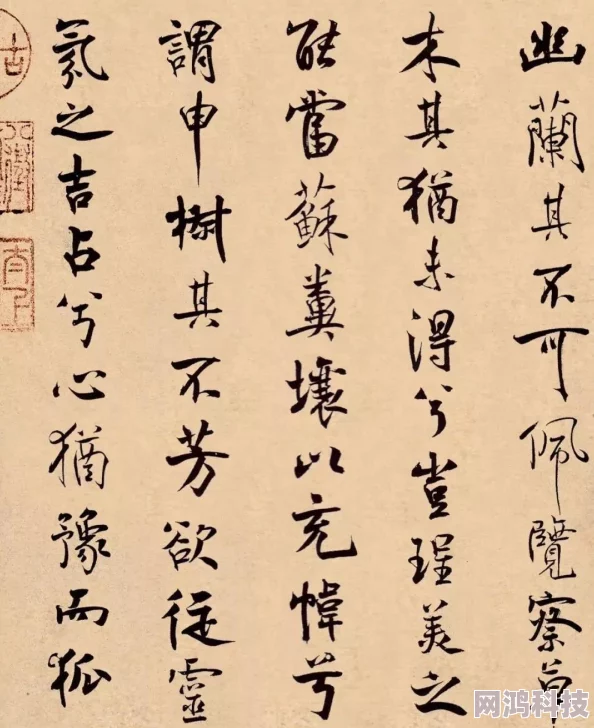 幽蘭其不可佩覽察草
木其猶未得兮豈珵美之
能當蘇糞壤以充幃兮
謂申樹其不芳欲從靈
氛之吉占兮心猶豫而狐
网鸿科技